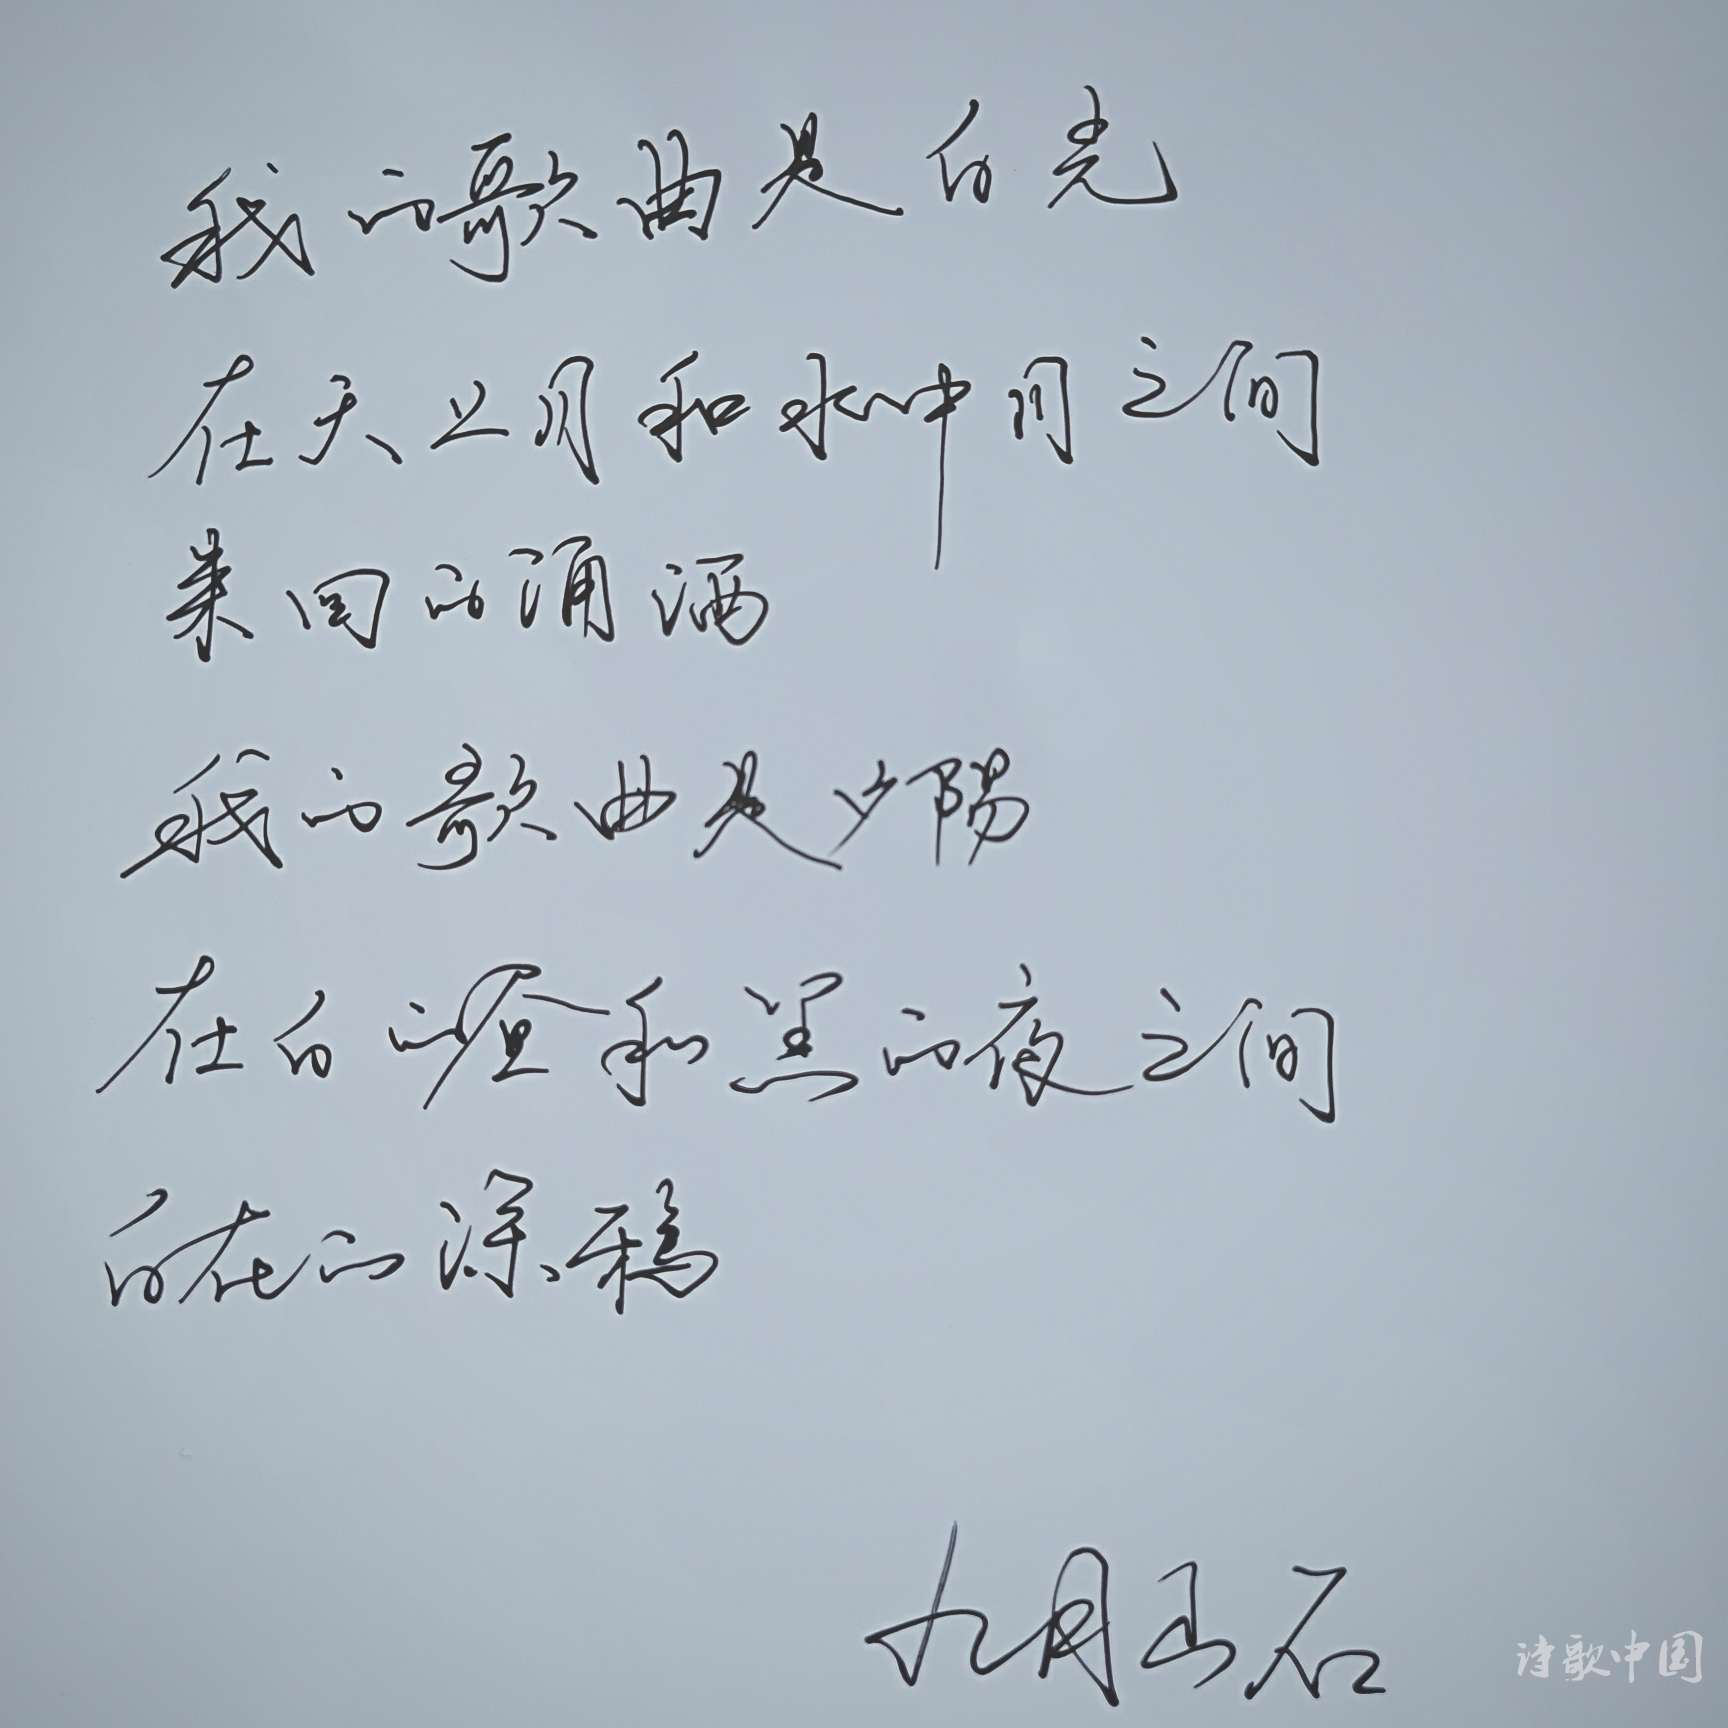 我的歌曲是白光
在天上月和水中月之间
来回的涌洒
我的歌曲是夕陽
在白的昼和黑的夜之间
自在的涂稿
九月玉石
诗歌中国